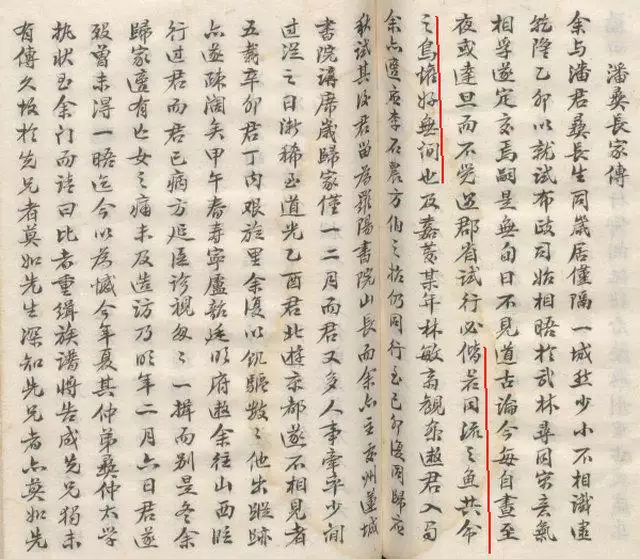 潘彝長家傳
余与潘君彝長生同歲居僅隔一城然少小不相識逮
乾隆乙卯以就試布政司始相晤於武林尋同寓意氣
相孚遂定交焉嗣是無旬日不見道古論今每自晝至
夜或達旦而不覺遇郡省試行必偕若同流之魚共命
之鳥懽好無間也及嘉慶某年林敏斋觀察邀君入蜀
余亦還應李石農方伯之招仍同行至己卯復同歸应
秋試其後君留為羅陽書院山長而余亦主玉州蓮城
書院講席歲歸家僅一二月而君又多人事牽率少閒
過從之日漸稀至道光乙酉君北遊京都遂不相見者
五載辛卯君丁內艱旋里余復以飢驅數數他出蹤跡
亦遂疎闊矣甲午春寿寧盧 廷明府邀余往山西臨
行過君而君已病方延医診視匆匆一揖而別是冬余
歸家適有亡女之痛未及造訪乃明年二月六日君遂
歿曾未得一晤迄今以為憾今年夏其仲弟彝仲太学
執状至余门而請曰比者重緝族譜將告成先兄獨未
有傳久故於先兄者莫如先生深知先兄者亦莫如先